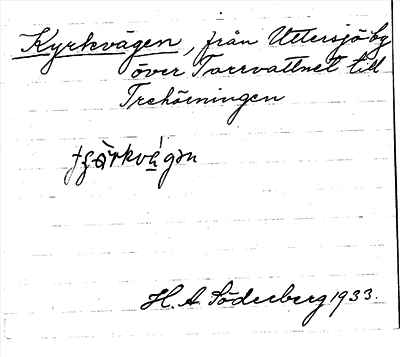 Kyrkvägen, från Uttersjöby
över Torrvattnet till
Trehörningen
H. A. Söderberg 1933.